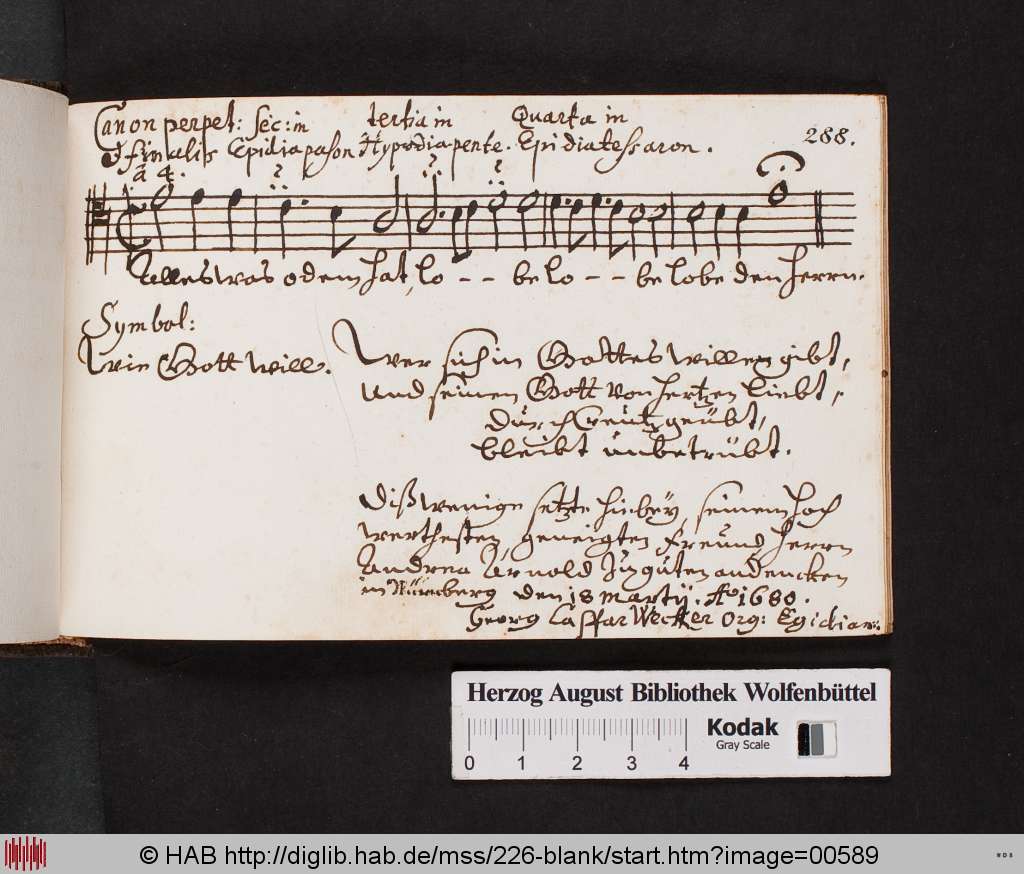 Canon perpet: Sec: in tertia in Quarta in
& finalis Epidiapason Hypodiapente. Epidiatessaron.
288.
à 4.
Alles was odem hat, lo - - be lo - - be lobe den Herrn.
Symbol:
Wie Gott will.
Wer sich in Gottes willen gibt,
Und seinen Gott von hertzen liebt,
Durch Creütz geübt,
bleibt ünbetrübt.
Diß wenige setzte hiebeÿ, seinem Hoch
werthesten geneigten Freünd Herrn
Andrea Arnold Zu güten andencken
in Nürnberg den 18 martij. Ao 1680.
Georg Caspar Wecker Org: Egidian:
Herzog August Bibliothek Wolfenbüttel
0 1 2 3 4
Kodak
Gray Scale
© HAB http://diglib.hab.de/mss/226-blank/start.htm?image=00589
WDB